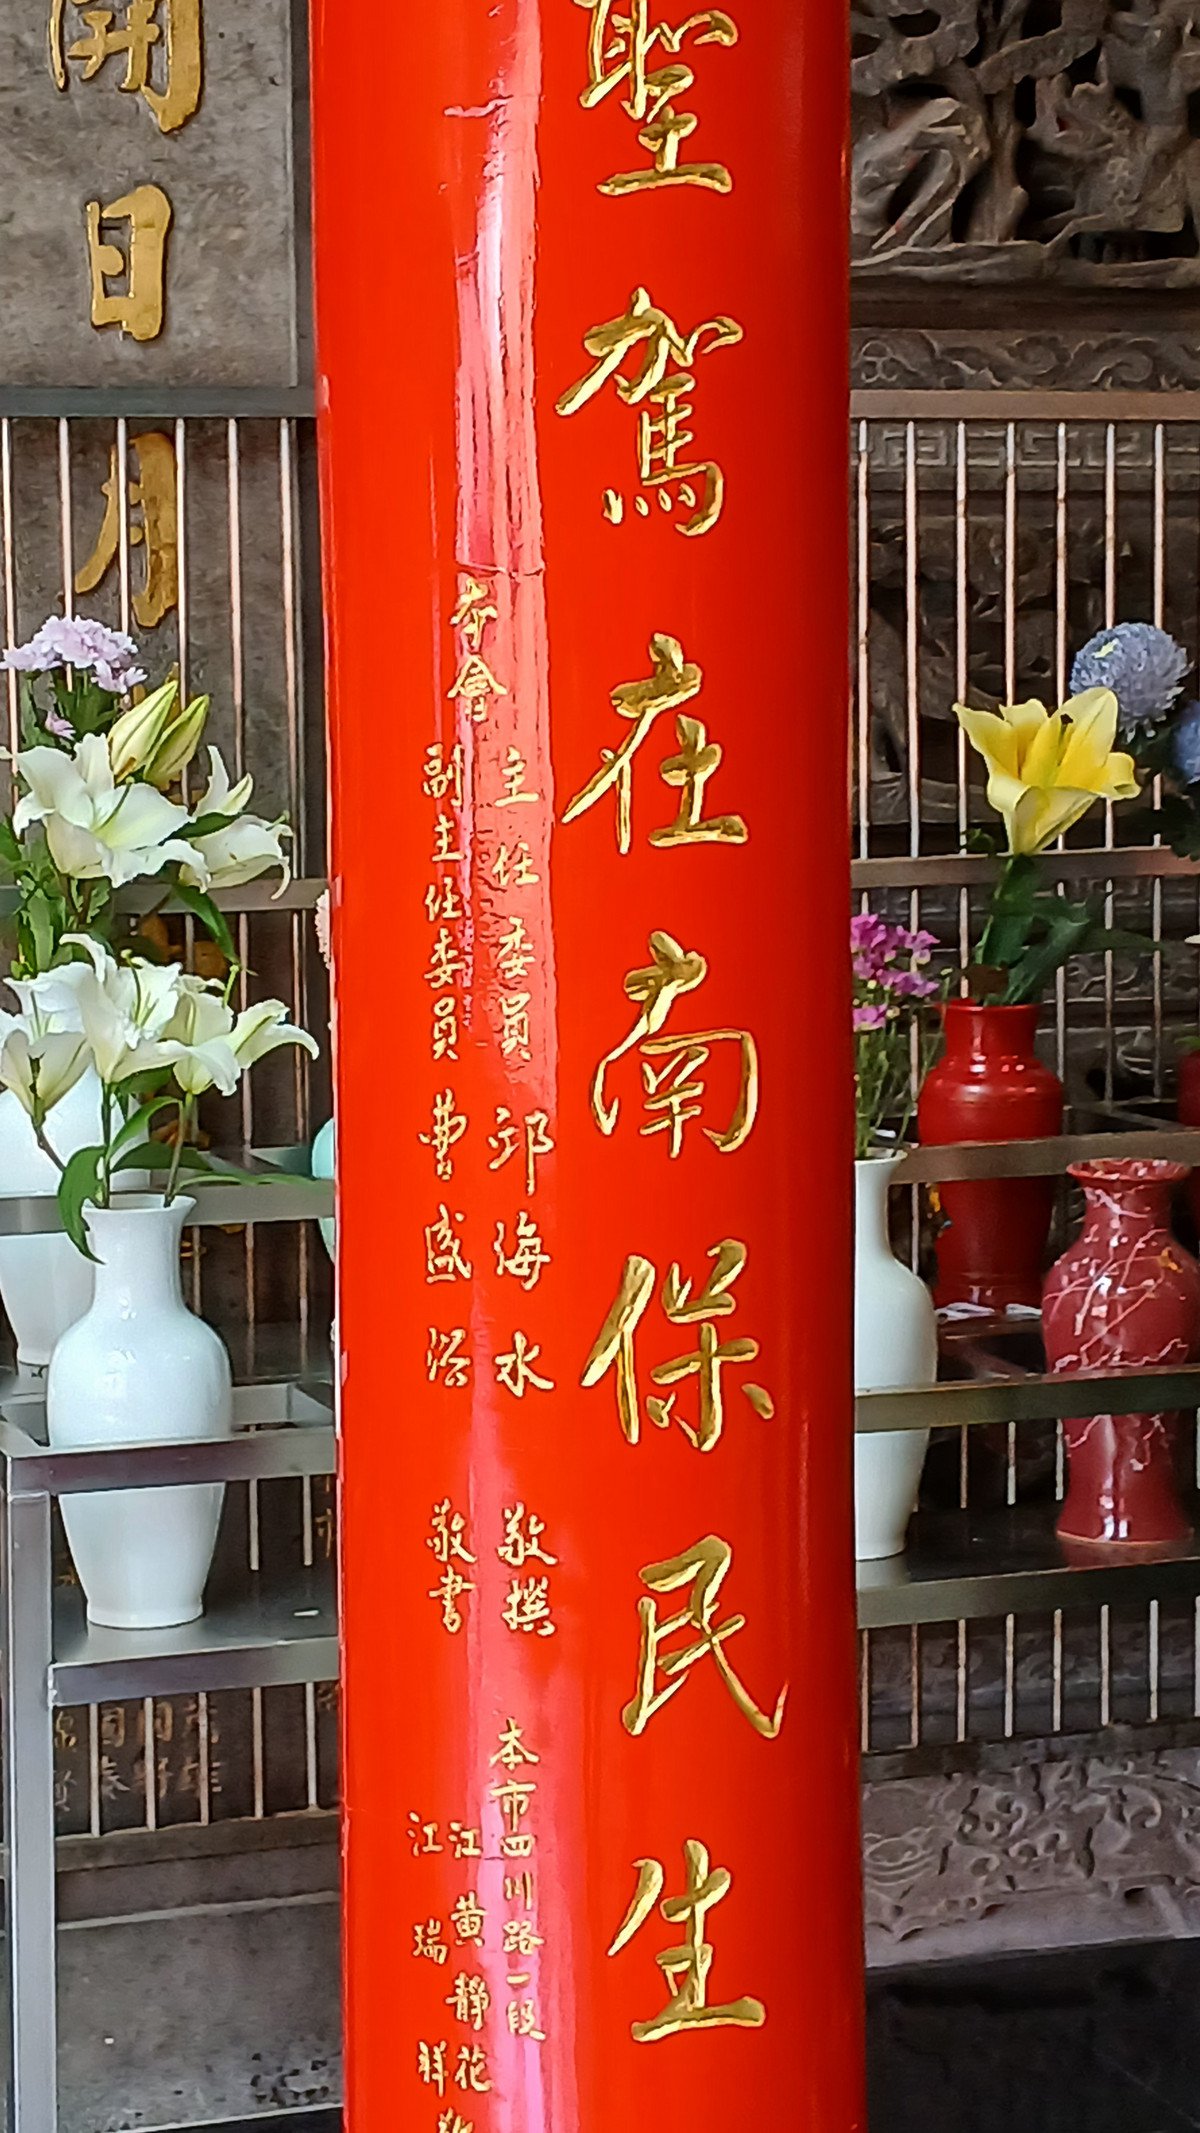 聖駕在南保民生
本會
主任委員 邱海水 敬撰
副主任委員 曹盛浴 敬書
本市四川路一段
江黃靜花
江瑞祥
開日月